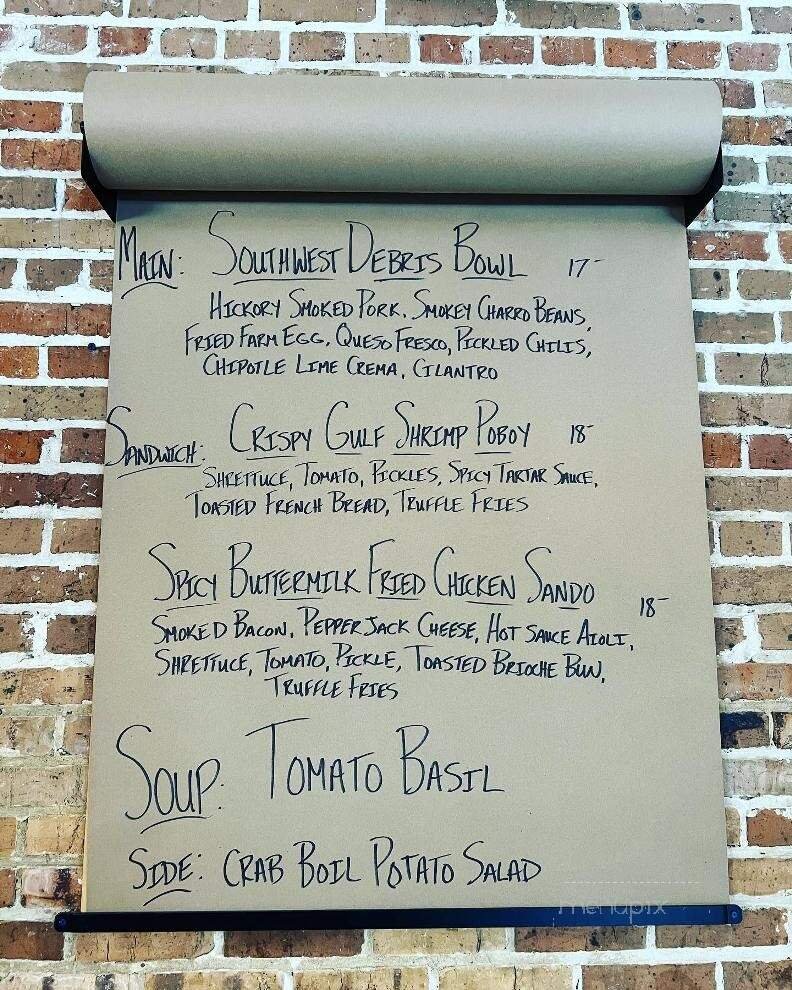 MAIN: SOUTHWEST DEBRIS BOWL 17-
HICKORY SMOKED PORK, SMOKEY CHARRO BEANS,
FRIED FARM EGG, QUESO FRESCO, PICKLED CHILIS,
CHIPOTLE LIME CREMA, CILANTRO
SANDWICH: CRISPY GULF SHRIMP POBOY 18-
SHRETTUCE, TOMATO, PICKLES, SPICY TARTAR SAUCE,
TOASTED FRENCH BREAD, TRUFFLE FRIES
SPICY BUTTERMILK FRIED CHICKEN SANDO 18-
SMOKED BACON, PEPPER JACK CHEESE, HOT SAUCE AIOLI,
SHRETTUCE, TOMATO, PICKLE, TOASTED BRIOCHE BUN,
TRUFFLE FRIES
SOUP: TOMATO BASIL
SIDE: CRAB BOIL POTATO SALAD
menupix